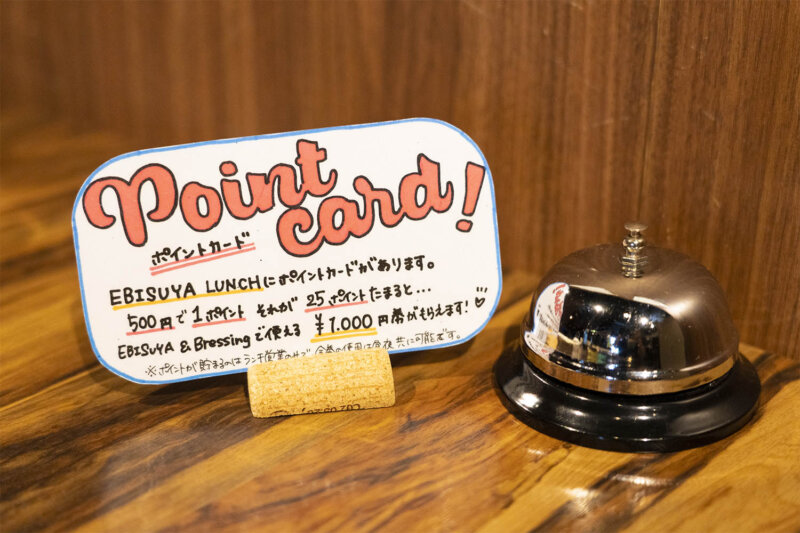 Point
card!
ポイントカード
EBISUYA LUNCHにポイントカードがあります。
500円で1ポイント それが 25ポイントたまると...
EBISUYA & Bressingで使える ¥1.000円券がもらえます!♡
※ポイントが貯まるのはランチ営業のみで 金券の使用は昼夜共に可能です。